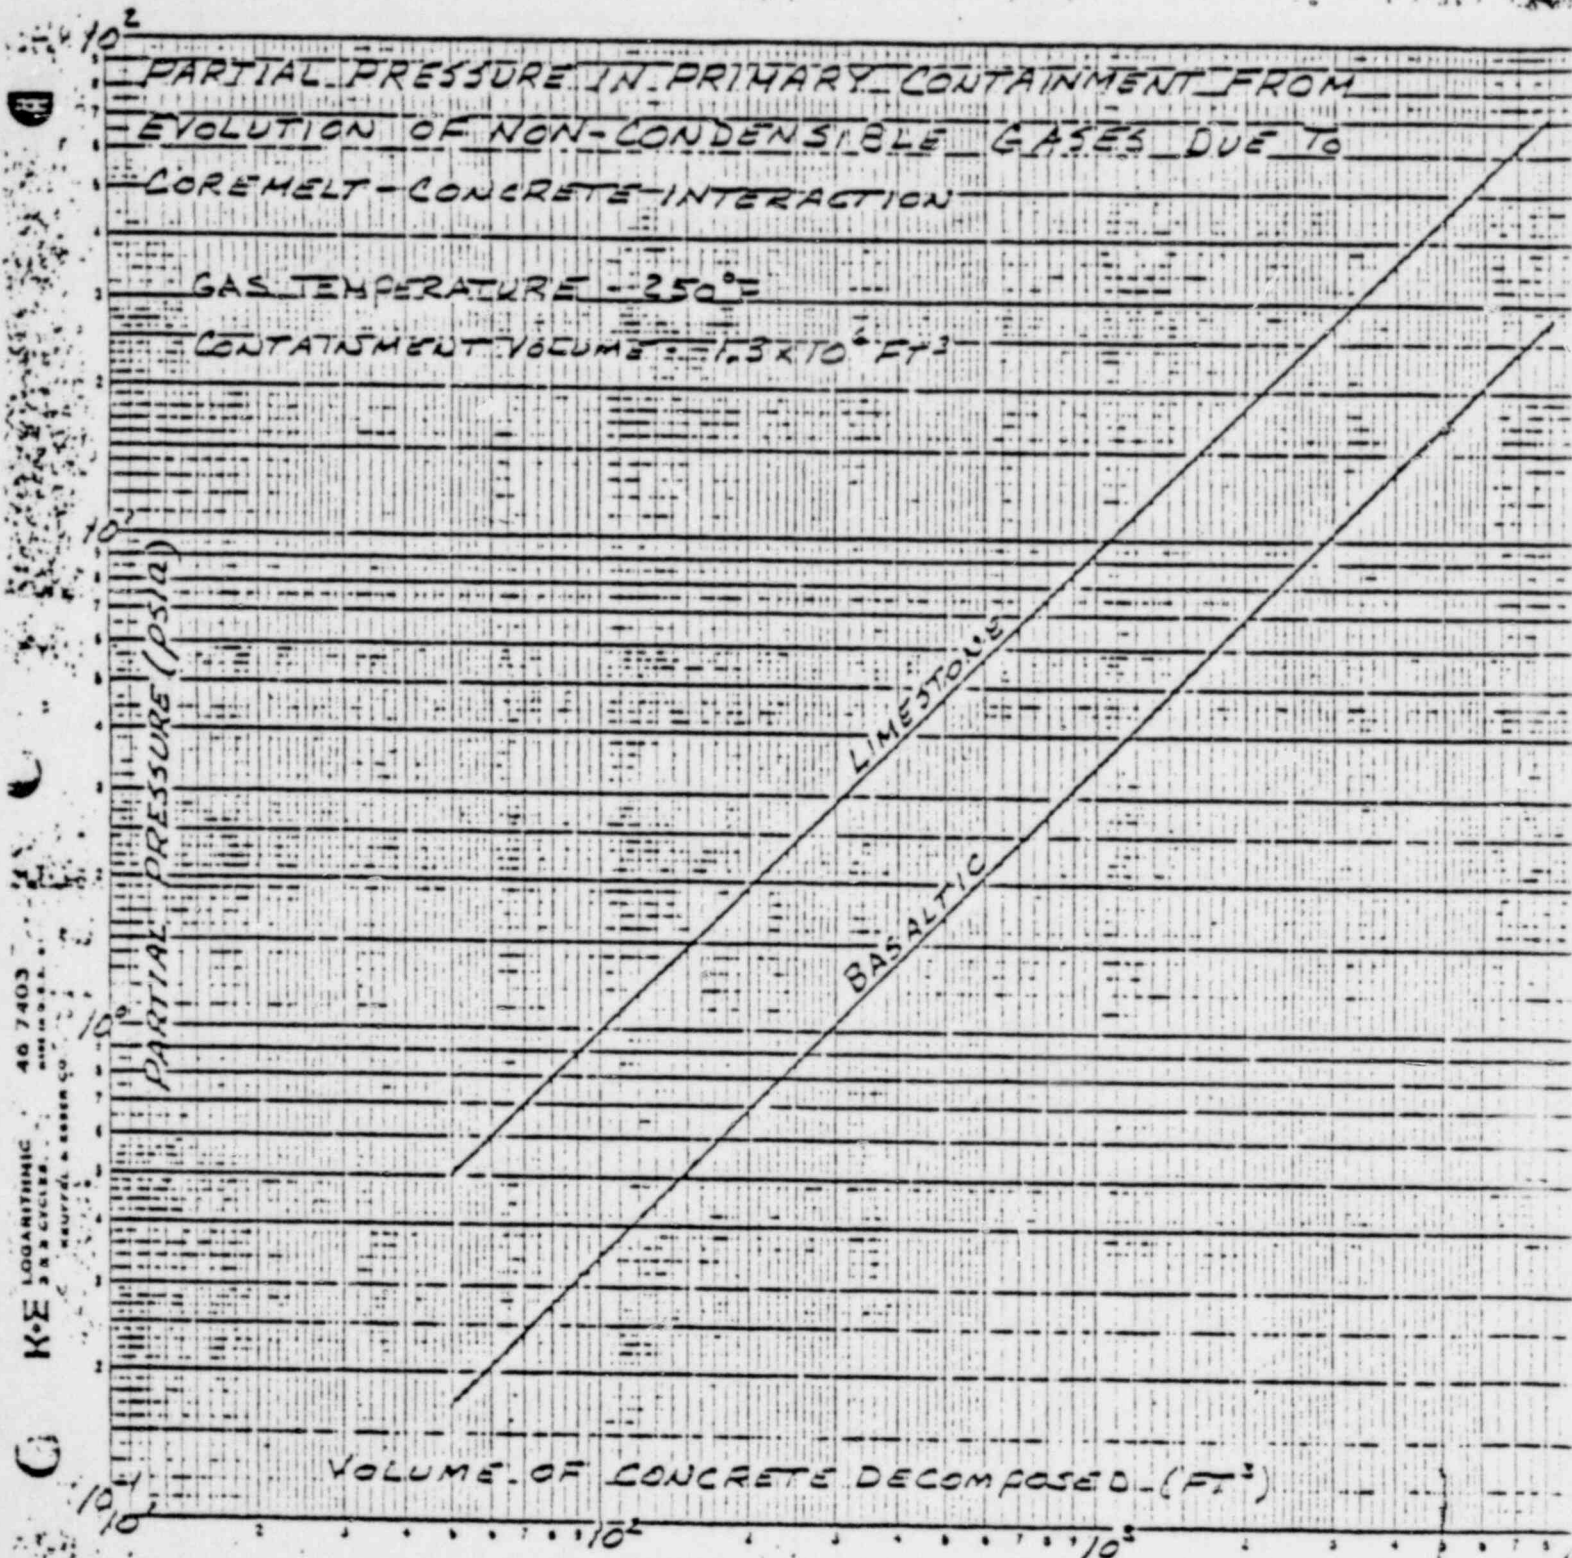 PARTIAL PRESSURE IN PRIMARY CONTAINMENT FROM
EVOLUTION OF NON-CONDENSIBLE GASES DUE TO
COREMELT-CONCRETE INTERACTION
GAS TEMPERATURE - 250°F
CONTAINMENT VOLUME - 1.3 x 10⁶ FT³
PARTIAL PRESSURE (PSIA)
10²
10¹
10⁰
10⁻¹
LIMESTONE
BASALTIC
VOLUME OF CONCRETE DECOMPOSED (FT³)
10¹
10²
10³
K+E LOGARITHMIC 46 7403
3 X 3 CYCLES
KEUFFEL & ESSER CO.